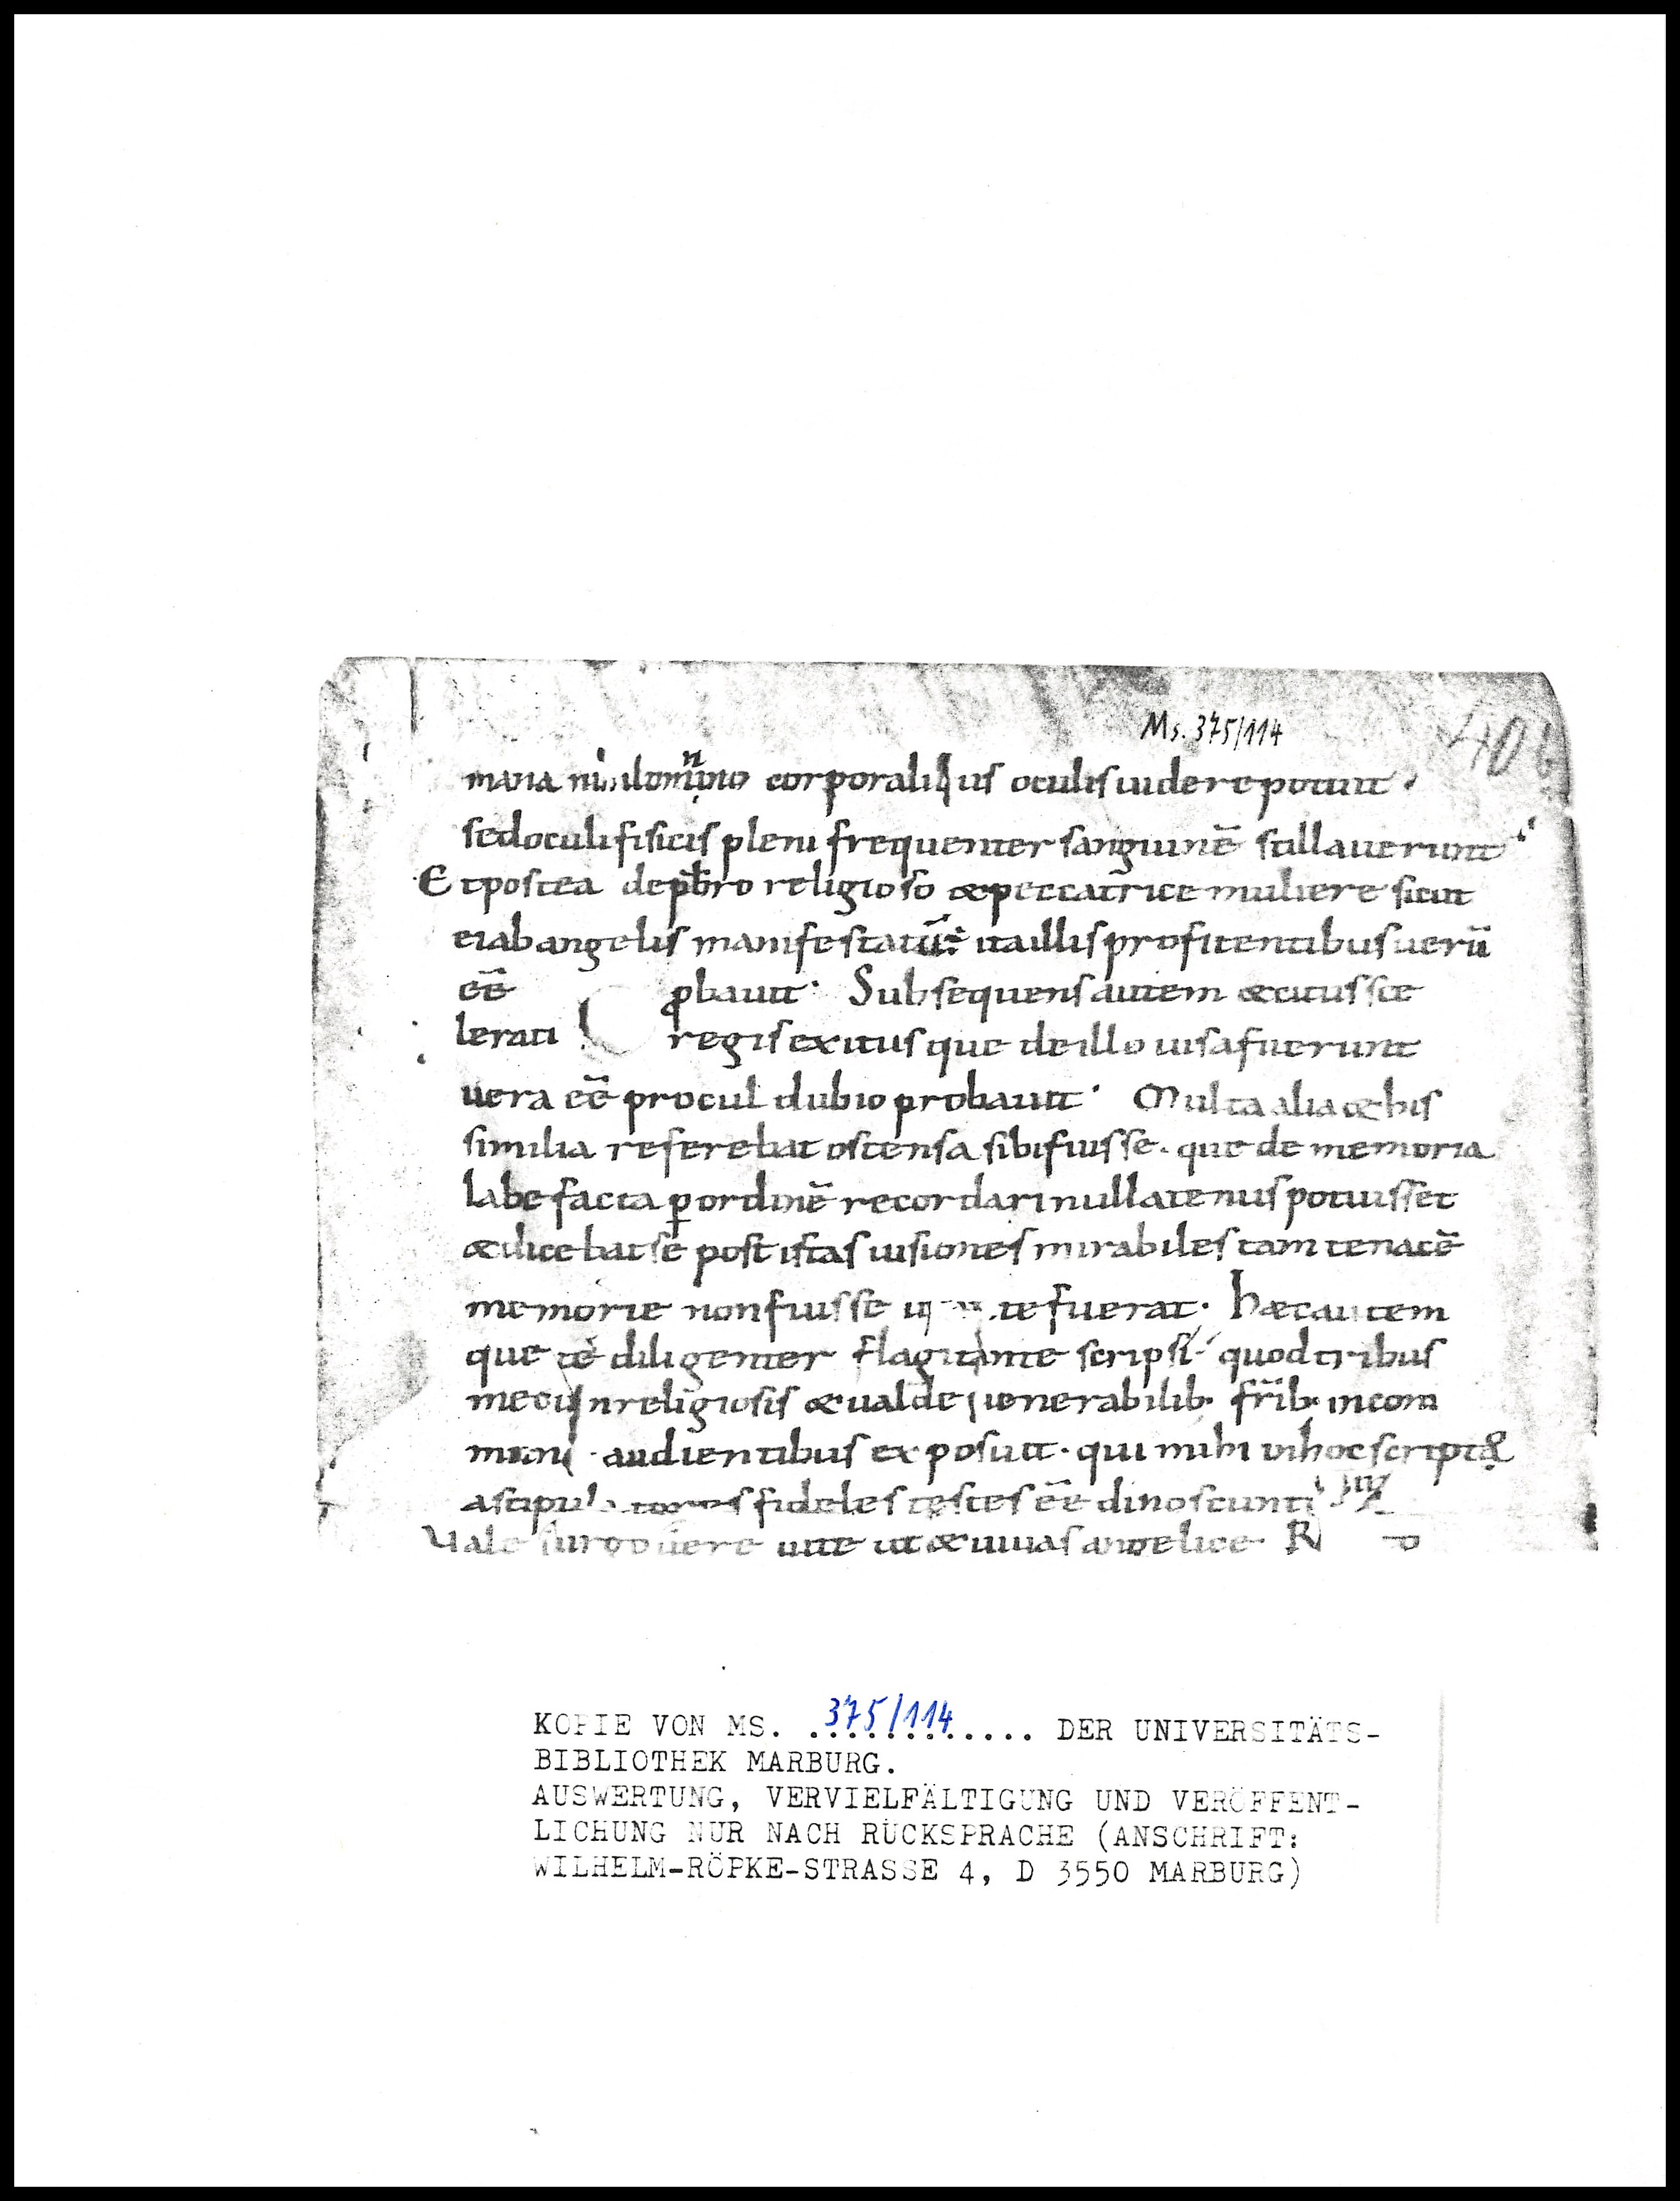 Ms. 375/114
40
corporalibus oculis uidere potuit.
sed oculi fisicis pleni frequenter sanguinē stillauerunt
Et postea de p̄bro religioso & peccatrice muliere sicut
ei ab angelis manifestatū: ita illis profitentibus uerū
eē probauit. Subsequens autem & citus sce
lerati regis exitus que de illo uisa fuerunt
uera eē procul dubio probauit. Multa alia & his
similia referebat ostensa sibi fuisse. que de memoria
labefacta ꝑ ordinē recordari nullatenus potuisset
& dicebat se post istas uisiones mirabiles tam tenacē
memorie non fuisse fuerat. Haec autem
que te diligenter flagitante scripsi. quod tribus
religiosis & ualde uenerabilib. fr̄ib. incom
muni audientibus exposuit. qui mihi in hoc script&
fideles testes eē dinoscunt
Vale uere uite ut & uiuas angelice. R
KOPIE VON MS. .375/114..... DER UNIVERSITÄTS-
BIBLIOTHEK MARBURG.
AUSWERTUNG, VERVIELFÄLTIGUNG UND VERÖFFENT-
LICHUNG NUR NACH RÜCKSPRACHE (ANSCHRIFT:
WILHELM-RÖPKE-STRASSE 4, D 3550 MARBURG)